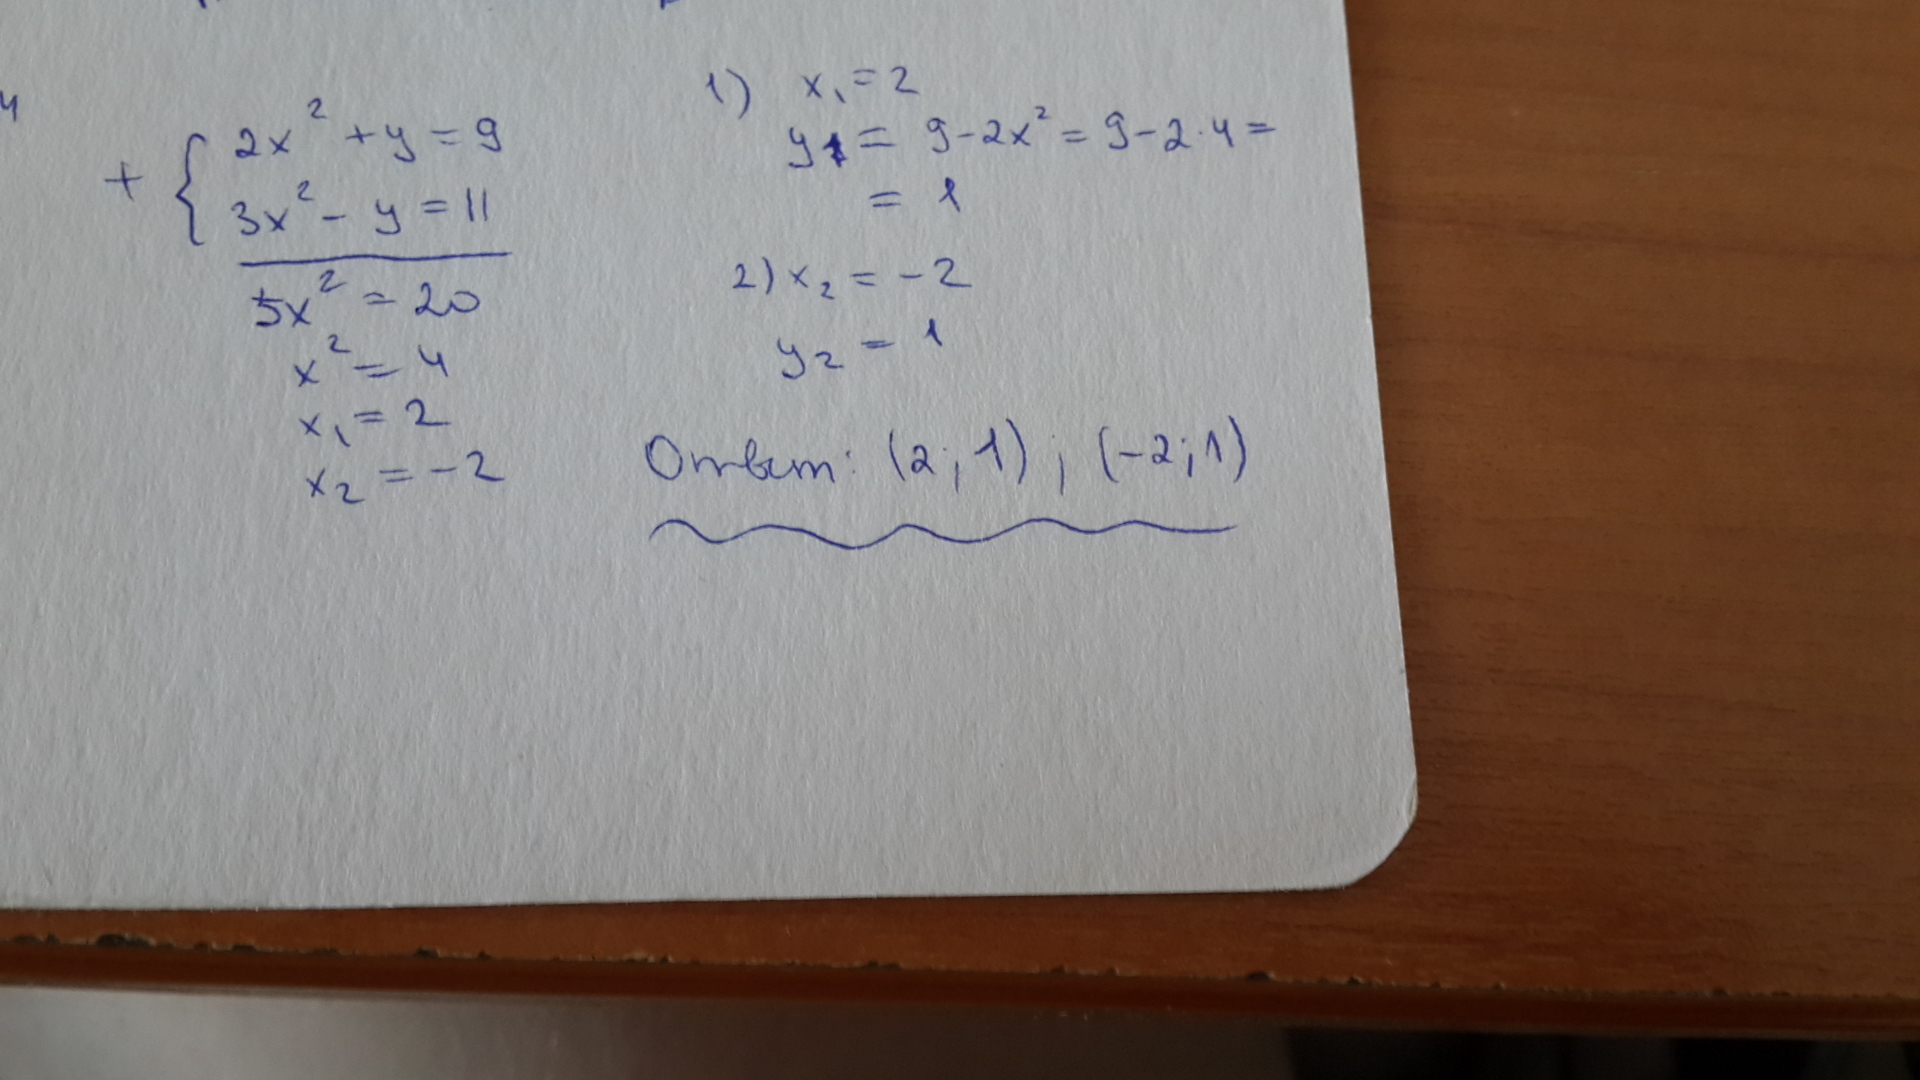 4
2x² + y = 9
+ {
3x² - y = 11
5x² = 20
x² = 4
x₁ = 2
x₂ = -2
1) x₁ = 2
y₁ = 9 - 2x² = 9 - 2·4 =
= 1
2) x₂ = -2
y₂ = 1
Ответ: (2; 1) ; (-2; 1)